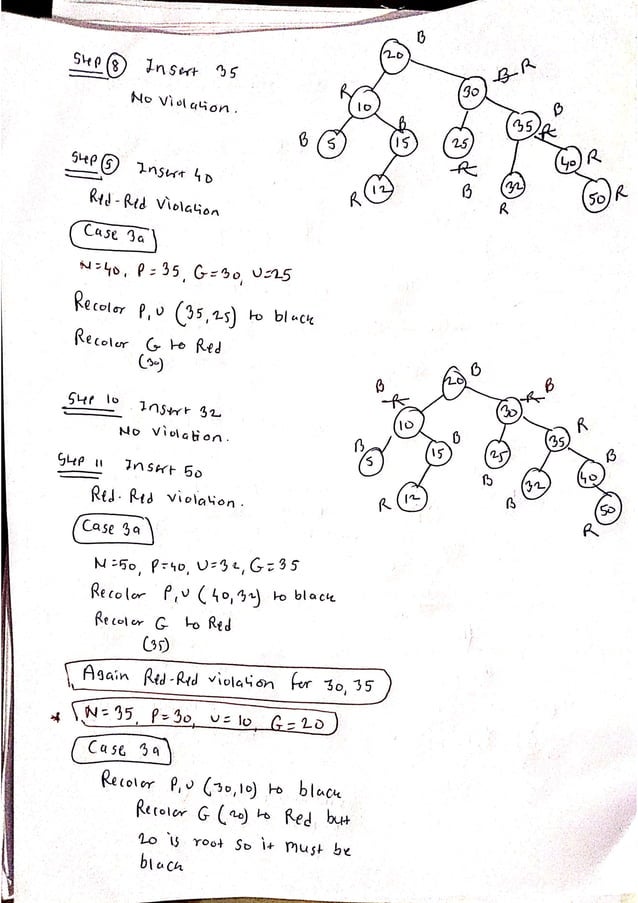 Step 8 Insert 35
No Violation.
B
20
R
10
B R
30
B
5
B
15
25
R
B
B
35
R
40 R
R 12
32
R
50 R
Step 9 Insert 40
Red-Red Violation
Case 3a
N=40, P=35, G=30, U=25
Recolor P,U (35,25) to black
Recolor G to Red
(30)
Step 10 Insert 32
No Violation.
Step 11 Insert 50
Red-Red violation.
Case 3a
N=50, P=40, U=32, G=35
Recolor P,U (40,32) to black
Recolor G to Red
(35)
20 B
B
R
10
R B
30
B
5
15 B
25
B
35 R
R 12
B 32
40 B
50
R
Again Red-Red violation for 30,35
* N=35, P=30, U=10, G=20
Case 3a
Recolor P,U (30,10) to black
Recolor G (20) to Red but
20 is root so it must be
black